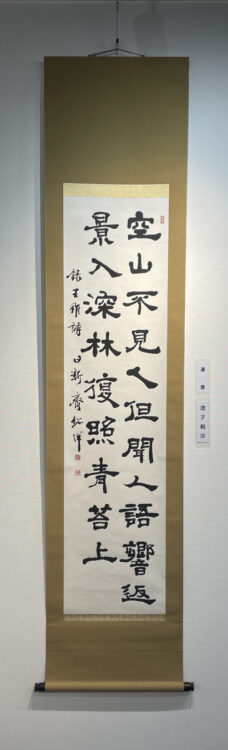 空山不見人但聞人語響返
景入深林復照青苔上
録王維詩 日新齋